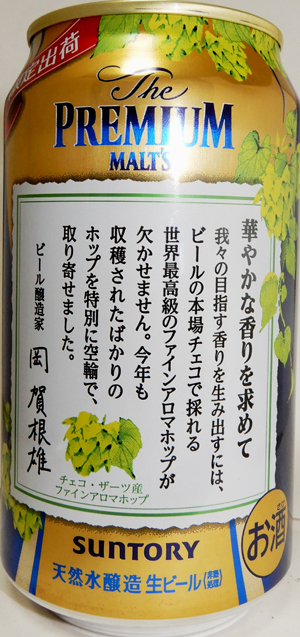 定出荷
The
PREMIUM
MALT'S
華やかな香りを求めて
我々の目指す香りを生み出すには、
ビールの本場チェコで採れる
世界最高級のファインアロマホップが
欠かせません。今年も
収穫されたばかりの
ホップを特別に空輸で、
取り寄せました。
ビール醸造家 岡賀根雄
チェコ・ザーツ産
ファインアロマホップ
お酒
SUNTORY
天然水醸造 生ビール(非熱処理)